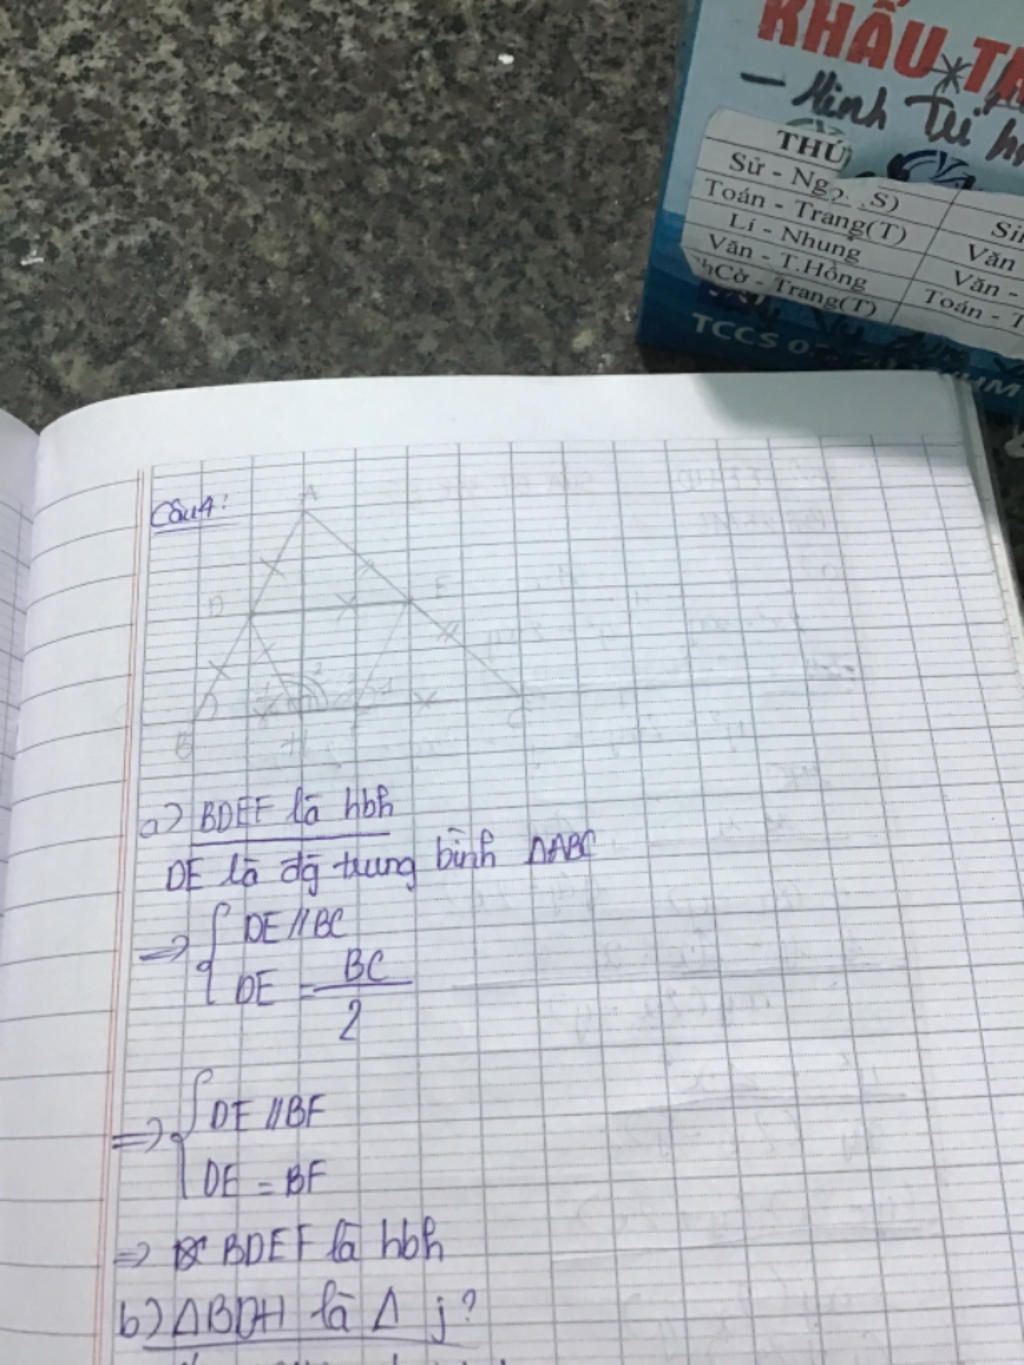 KHẨU TR
- Minh Tú
THỨ
Sử - Ngọ S)
Toán - Trang(T)
Lí - Nhung
Văn - T.Hồng
Cờ - Trang(T)
Sin
Văn
Văn -
Toán - T
TCCS
Câu 4:
A
D
E
B
H
F
C
a) BDEF là hbh
DE là đg trung bình ΔABC
=> { DE // BC
DE = BC
2
=> { DE // BF
DE = BF
=> BDEF là hbh
b) ΔBDH là Δ j?